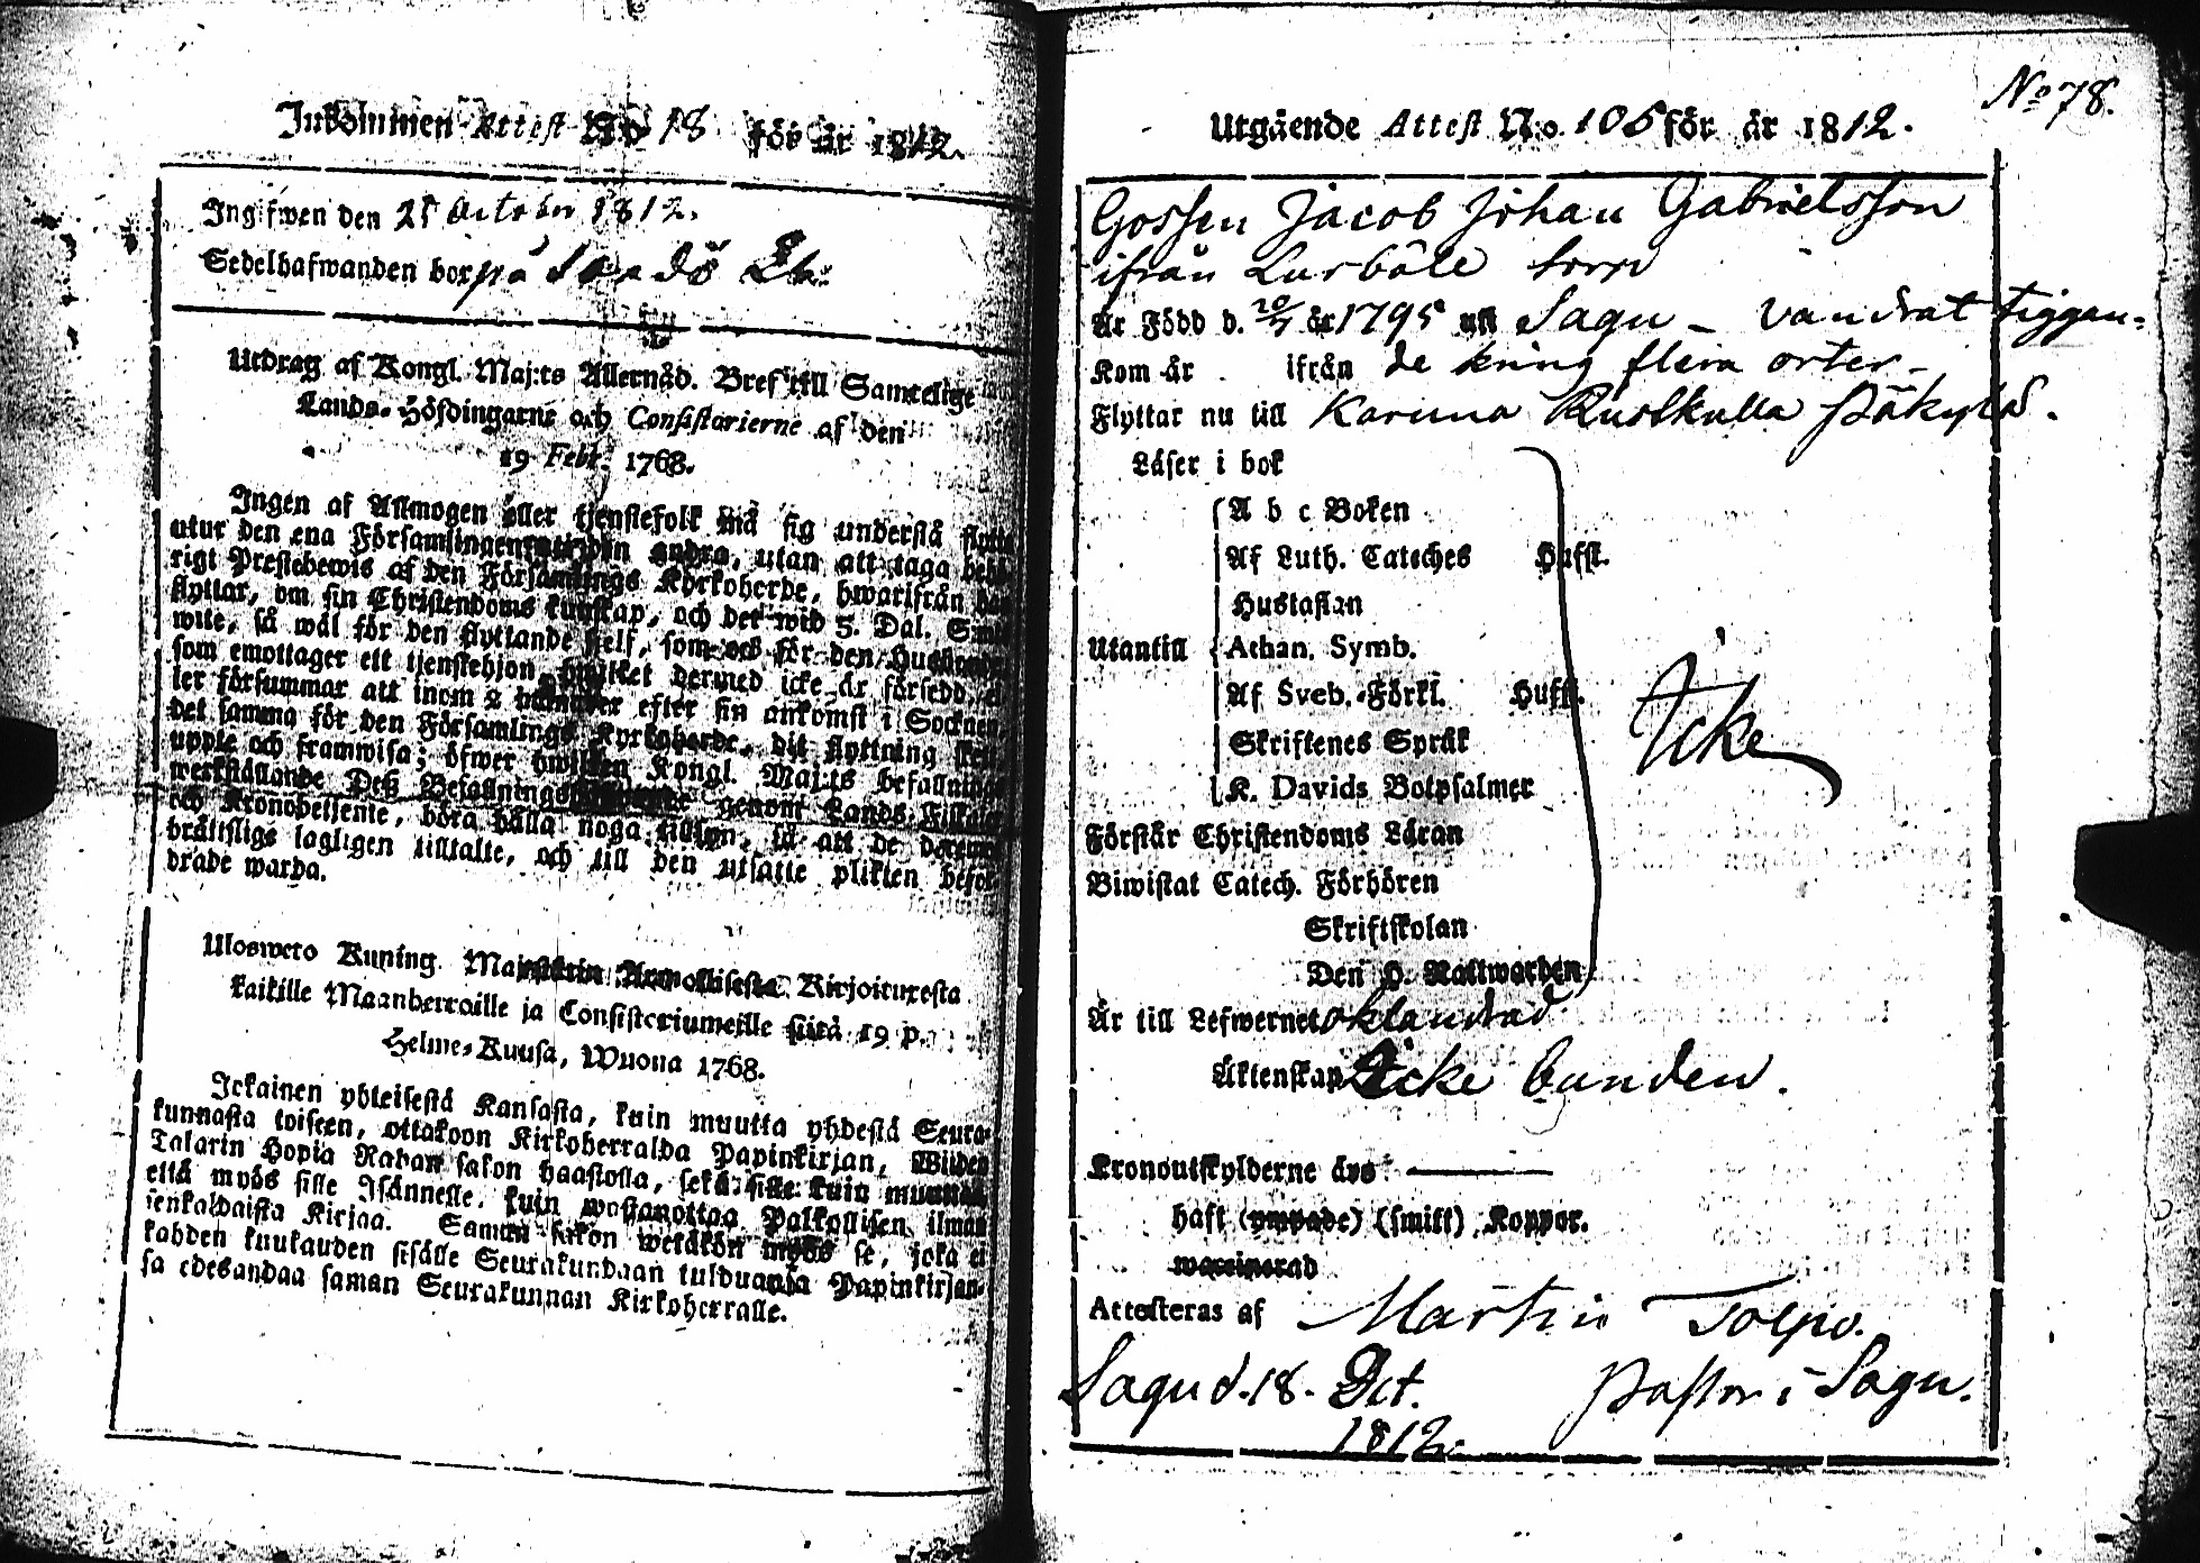 Inkommen Attest No 78 för år 1812.
Ingifwen den 25 October 1812.
Sedelhafwanden bor på Sandö
Utdrag af Kongl. Maj:ts Allernåd. Bref till Samtelige
Lands-Höfdingarne och Consistorierne af den
19 Febr. 1768.
Ingen af Allmogen eller tjenstefolk må sig understå flytta
utur den ena Församlingen den andra, utan att taga behö-
rigt Prestebewis af den Församlings Kyrkoherde, hwarifrån han
flyttar, om sin Christendoms kunskap, och det wid 5. Dal. Smts
wite, så wäl för den flyttande sjelf, som ock för den Husbonde
som emottager ett tjenstehjon, hwilket dermed icke är försedd, el-
ler försummar att inom 2 månader efter sin ankomst i Socknen
det samma för den Församlings Kyrkoherde, dit flyttning sker,
uppte och framwisa; öfwer hwilken Kongl. Maj:ts befallnings
werkställande Deß Befallnings genom Lands Fiskaler
och Kronobetjente, böra hålla noga tillsyn, så att de deremot
brättslige lagligen tilltalte, och till den utsatte plikten befor-
drade warda.
Ulosweto Kuning. Majestetin Armollisesta Kirjoituxesta
kaikille Maanherroille ja Consistoriumeille siitä 19 p.
Helme-Kuusa, Wuona 1768.
Jckainen yhteisestä Kansasta, kuin muutta yhdestä Seura-
kunnasta toiseen, ottakoon Kirkoherralda Papinkirjan, Wiiden
Talarin Hopia Rahan sakon haastolla, sekä sille kuin muutta
että myös sille Isännelle, kuin wastanottaa Palkollisen ilman
senkaldaista Kirjaa. Saman sakon wetäkön myös se, joka ei
kahden kuukauden sisälle Seurakundaan tulduansa Papinkirjan-
sa edesandaa saman Seurakunnan Kirkoherralle.
No 78.
Utgående Attest N:o. 105 för år 1812.
Gossen Jacob Johan Gabrielsson
ifrån Lurböle torp
Är Född d. 20/7 år 1795 uti Sagu – vandrat tiggan-
Kom år ifrån de kring flera orter –
Flyttar nu till Karuna Rustkulla Päkylä.
Läser i bok
A b c Boken
Af Luth. Cateches Hufst.
Hustaflan
Utantill Athan. Symb.
Af Sveb. Förkl. Hufst.
Skriftenes Språk
K. Davids Botpsalmer
Icke
Förstår Christendoms Läran
Biwistat Catech. Förhören
Skriftskolan
Den H. Nattwarden
Är till Lefwernet oklandrad
Äktenskap Icke bunden.
Kronoutskylderne äro
haft (ympade) (smitt) Koppor.
waccinerad
Attesteras af Martin Tolpo.
Sagu d. 18. Oct. Pastor i Sagu.
1812.